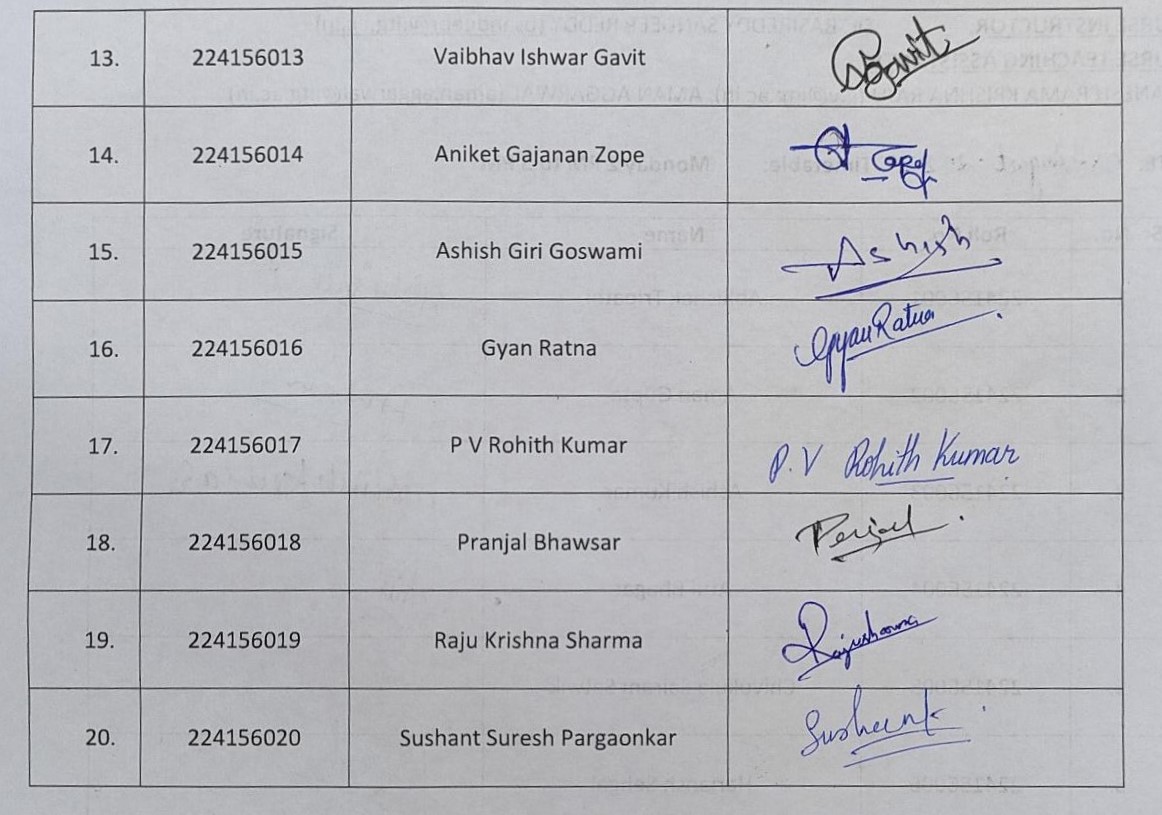 13. 224156013 Vaibhav Ishwar Gavit Gavit
14. 224156014 Aniket Gajanan Zope
15. 224156015 Ashish Giri Goswami Ashish
16. 224156016 Gyan Ratna Gyan Ratna
17. 224156017 P V Rohith Kumar P. V Rohith Kumar
18. 224156018 Pranjal Bhawsar
19. 224156019 Raju Krishna Sharma Rajusharma
20. 224156020 Sushant Suresh Pargaonkar Sushant